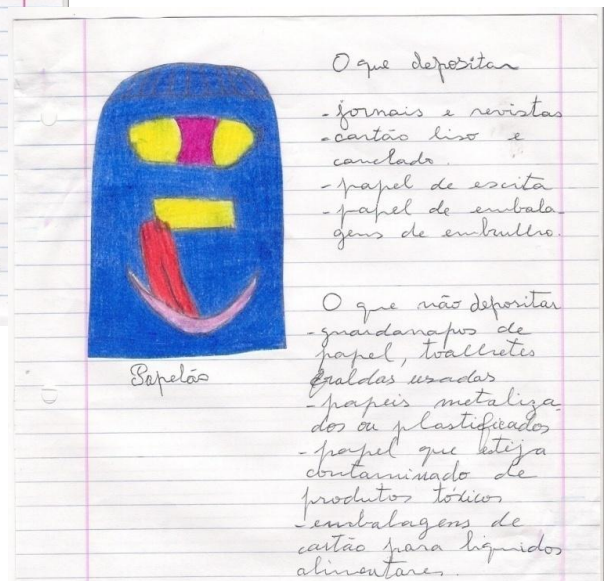 O que depositar
- jornais e revistas
- cartão liso e
canelado.
- papel de escrita
- papel de embala-
gens de embrulho.
O que não depositar
- guardanapos de
papel, toalhetes
fraldas usadas
- papeis metaliza-
dos ou plastificados
- papel que esteja
contaminado de
produtos tóxicos
- embalagens de
cartão para liquidos
alimentares.
Papelão